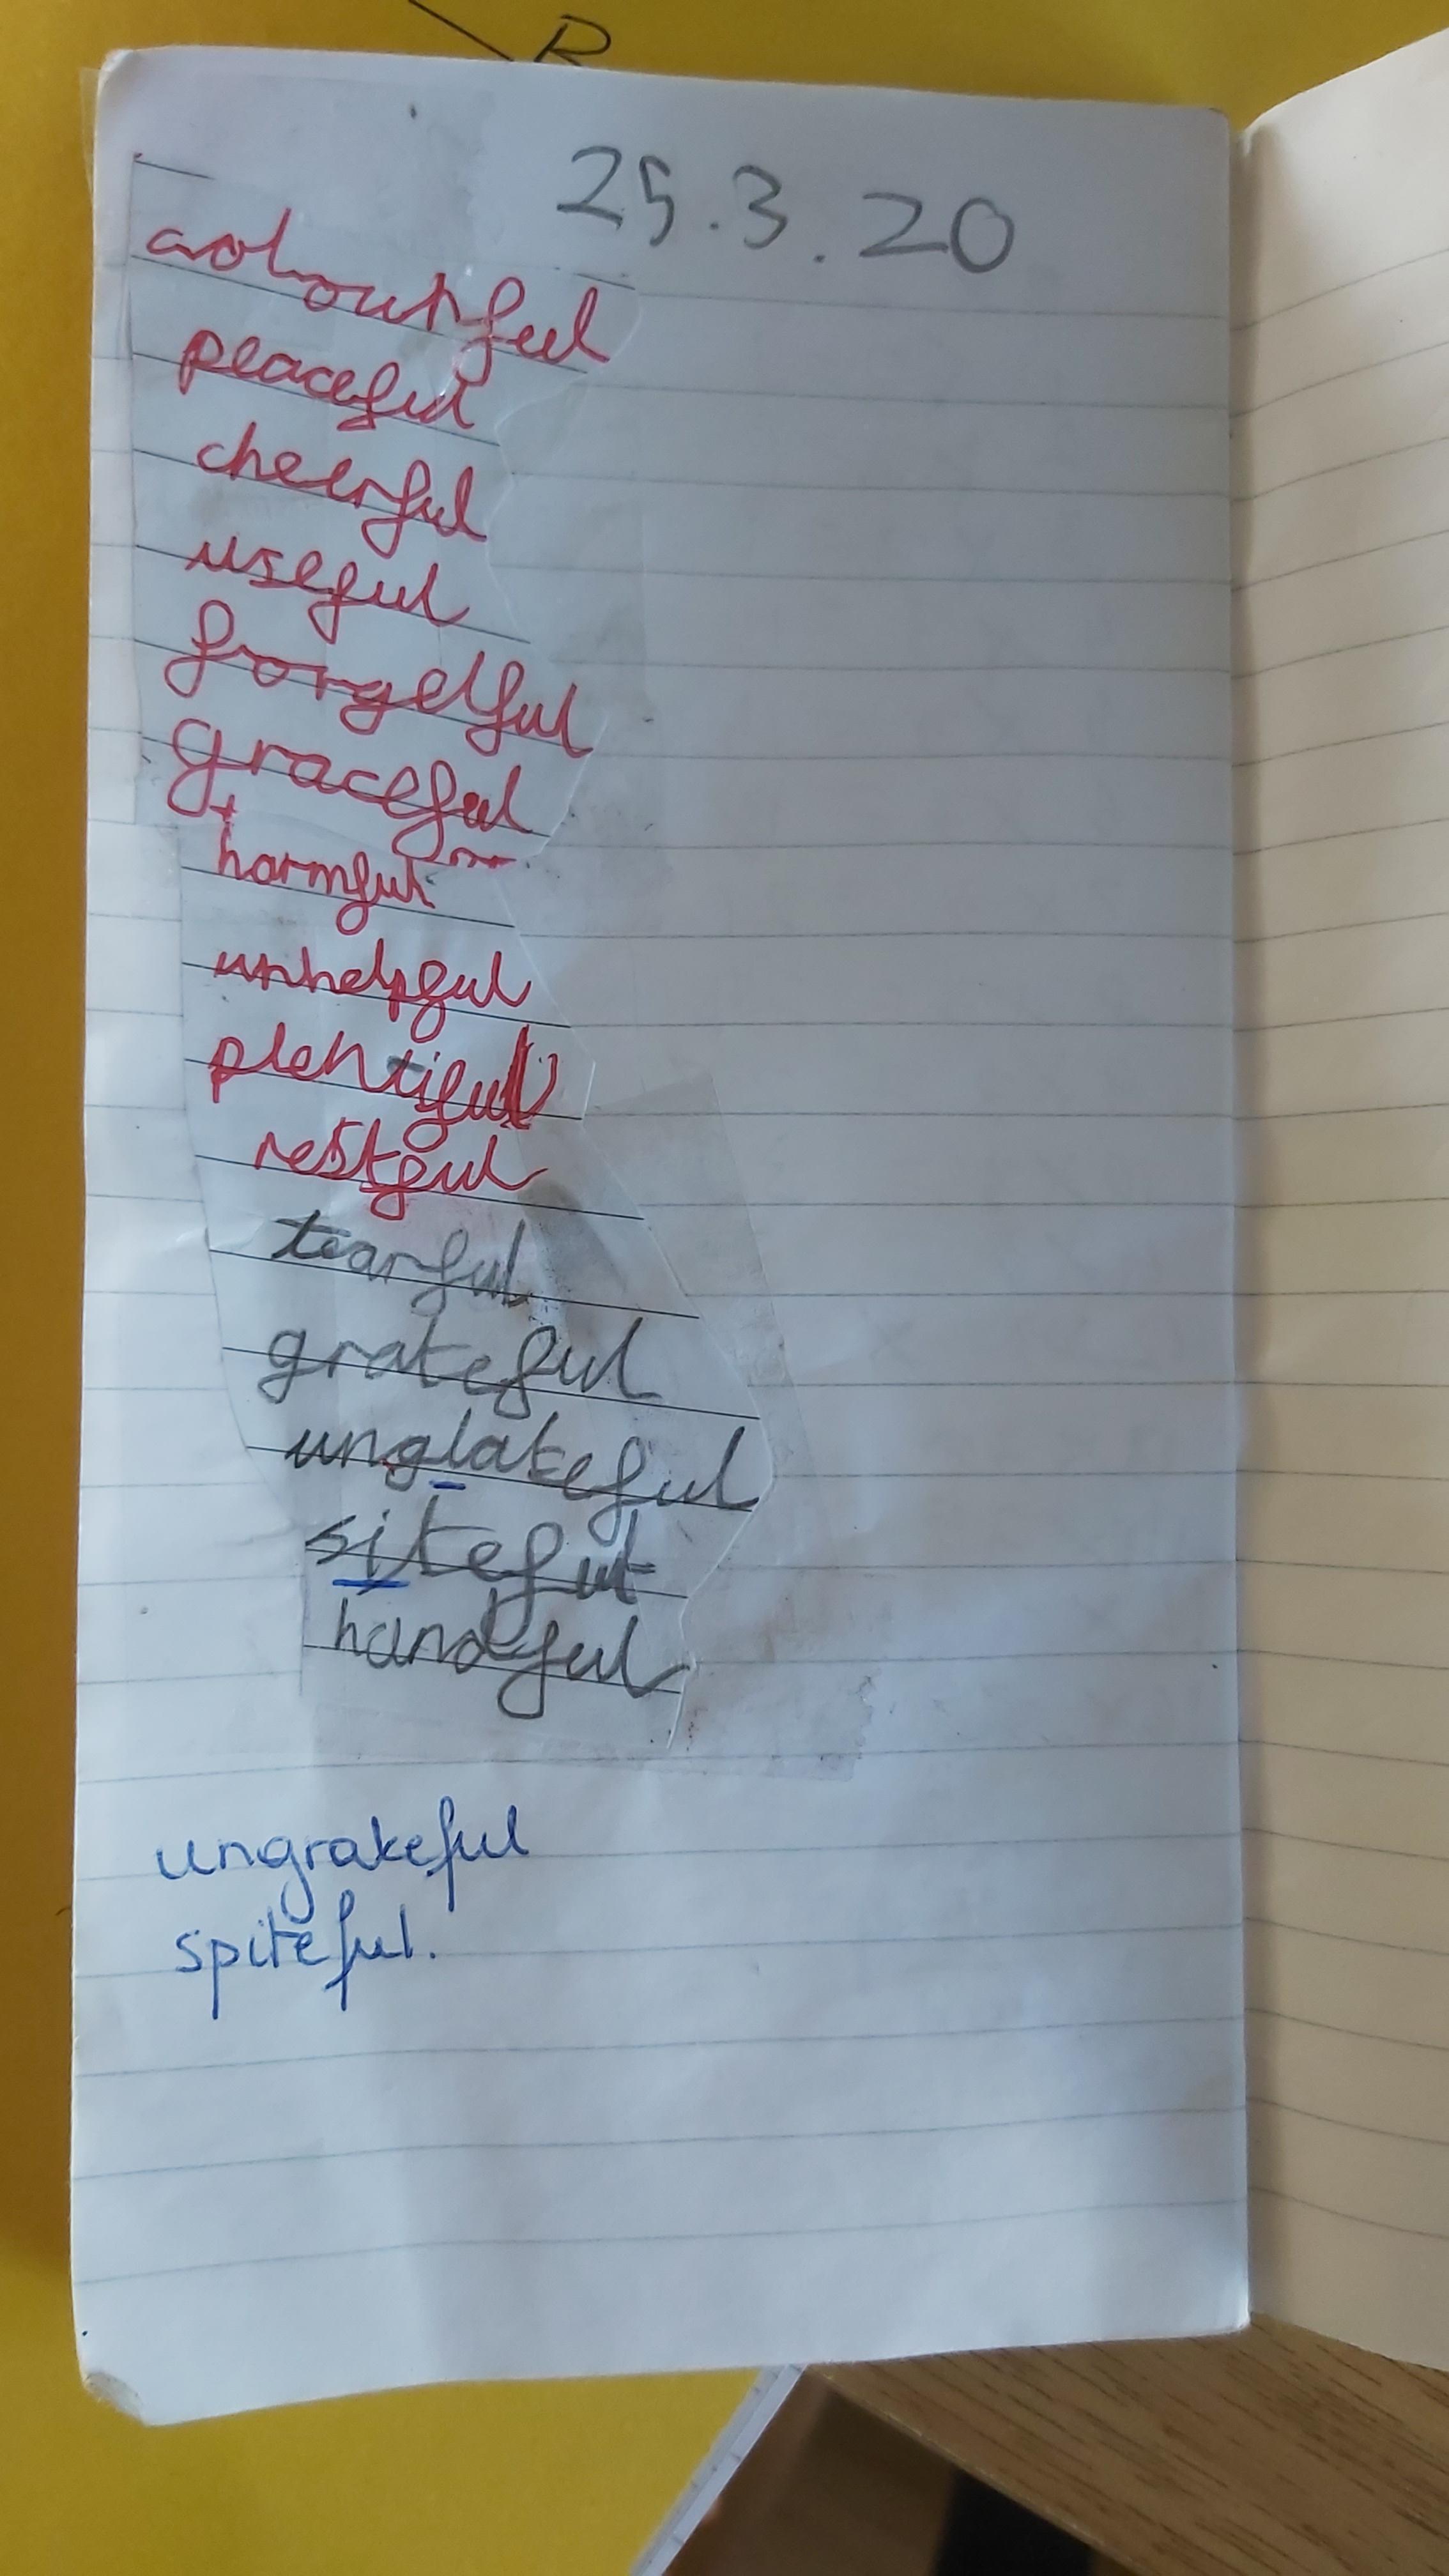 R
25.3.20
peaceful
cheerful
useful
forgetful
graceful
harmful
unhelpful
plentiful
restful
tearful
grateful
unglateful
siteful
handful
ungrateful
spiteful.